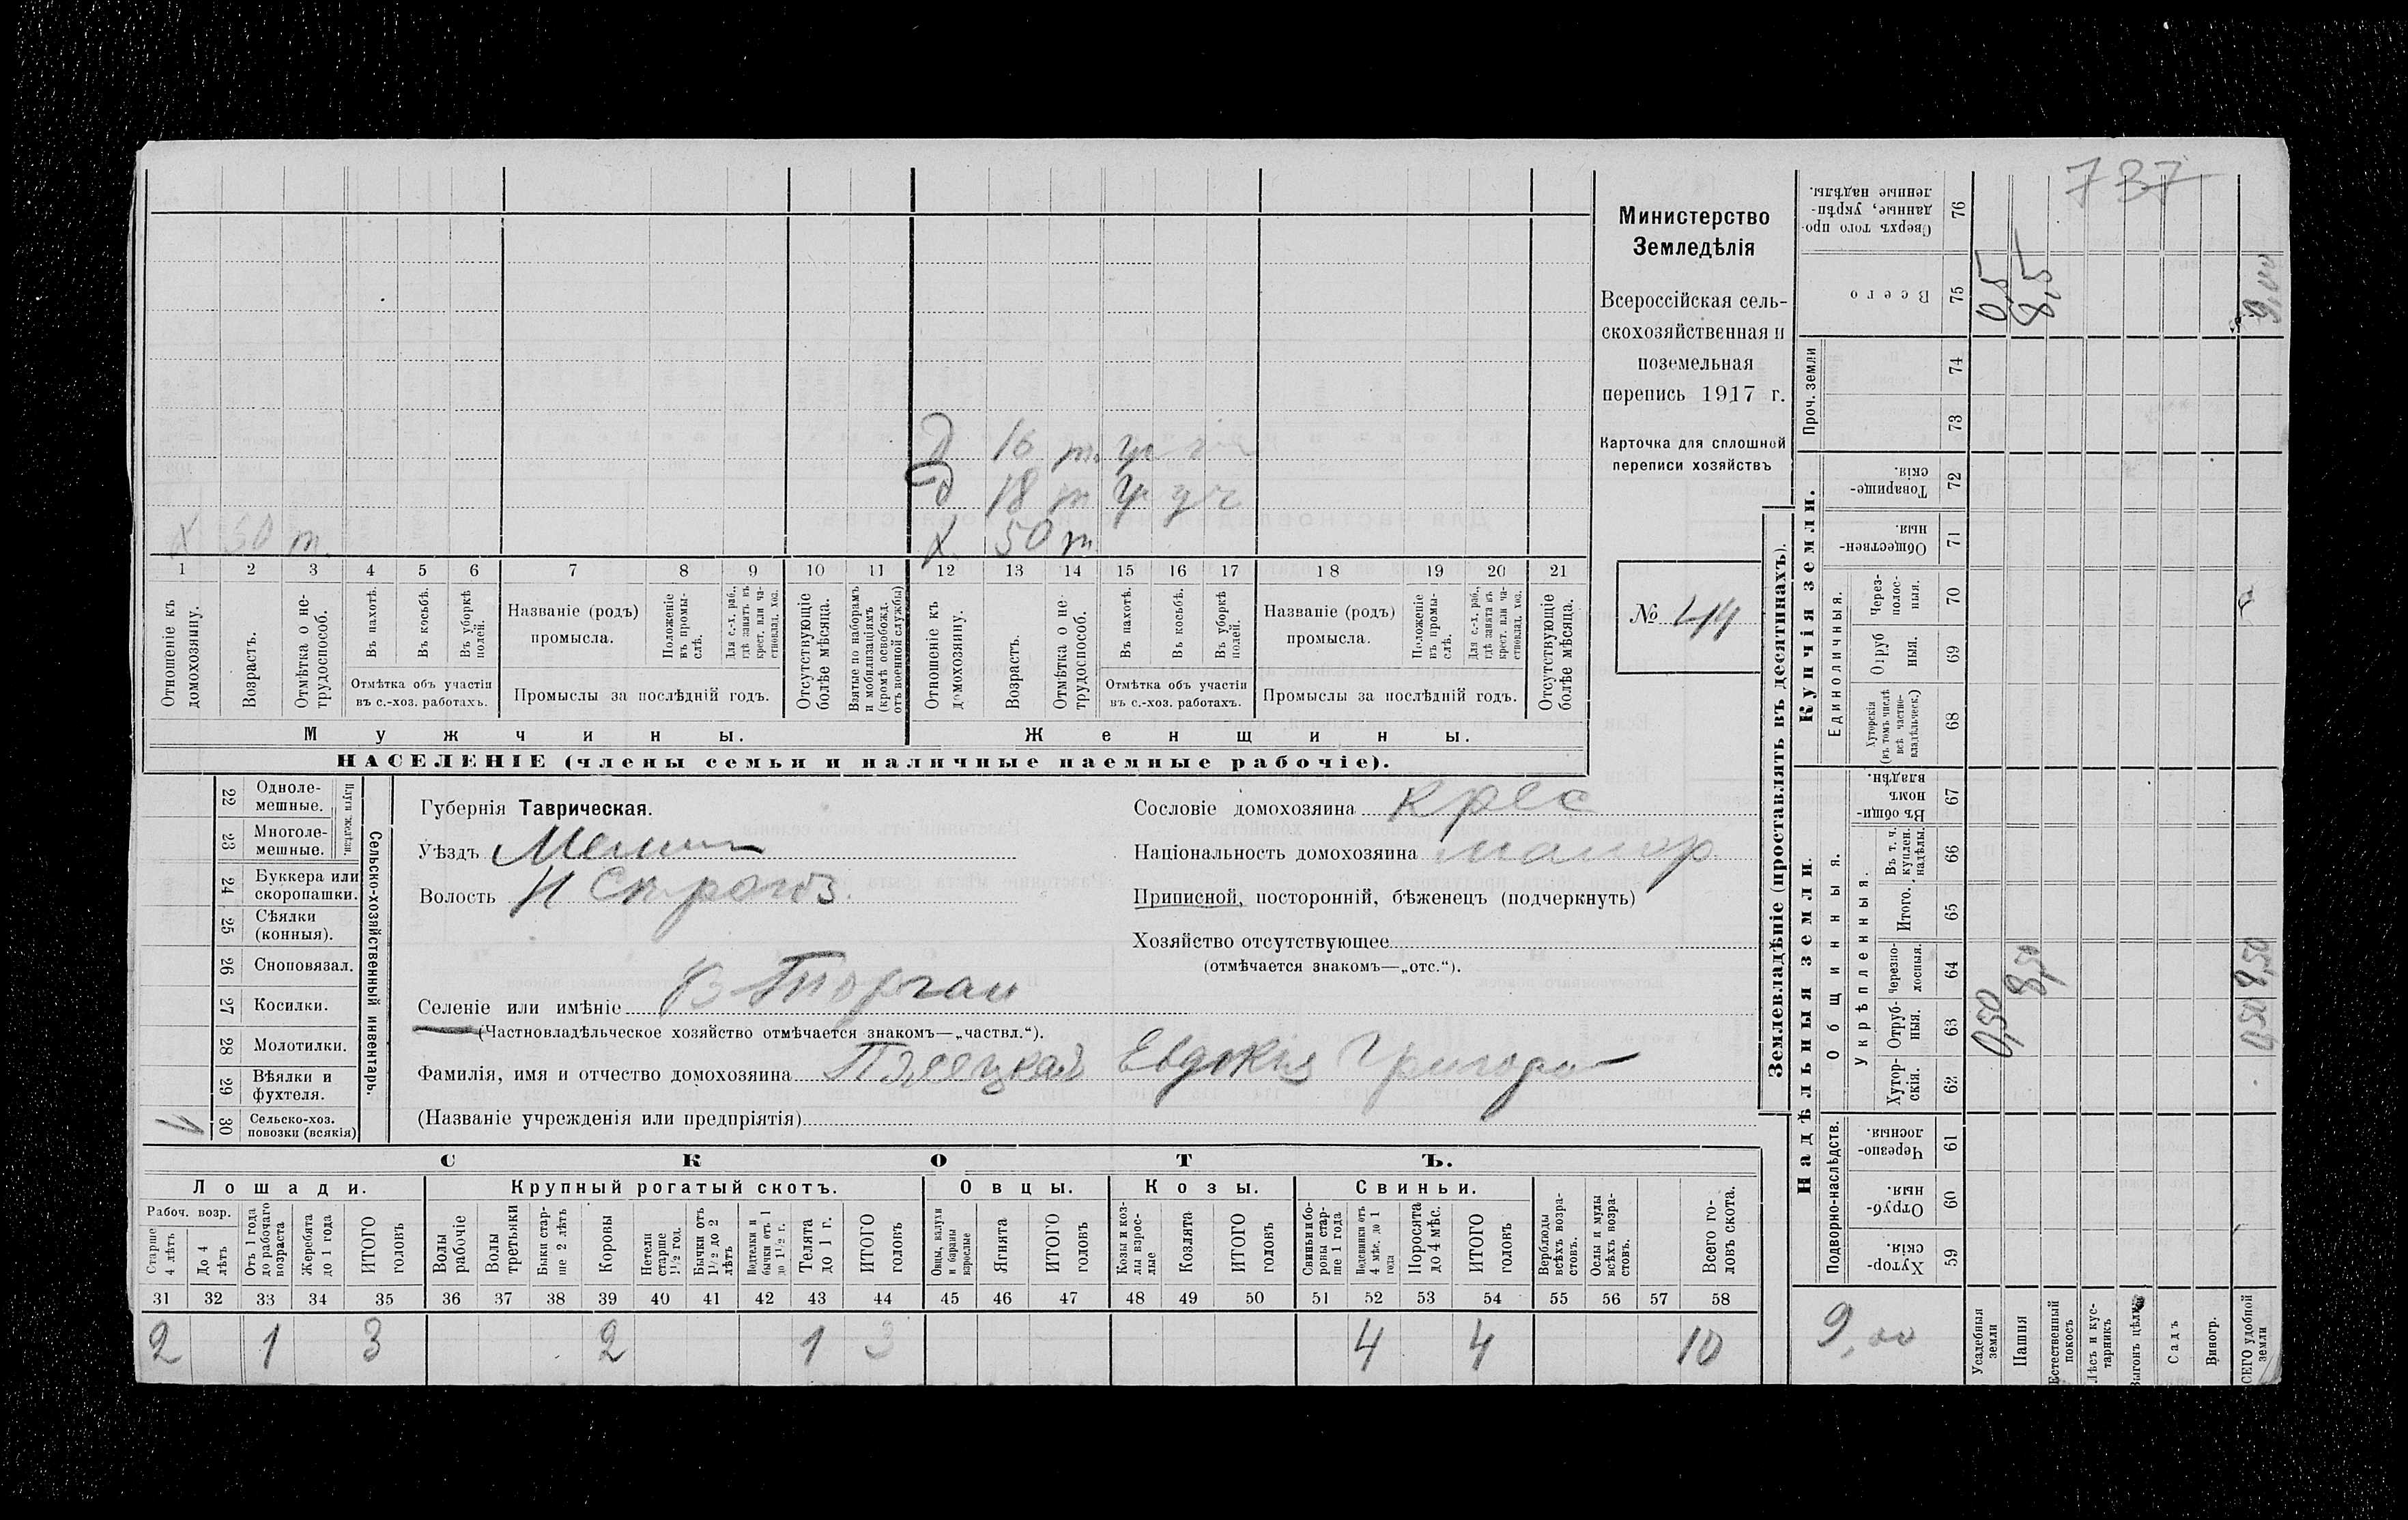 737
Министерство
Земледѣлія
Всероссійская сель-
скохозяйственная и
поземельная
перепись 1917 г.
Карточка для сплошной
переписи хозяйствъ
№ 44
д 16 т.
д 18 т
х 50 т
х 50 т
1 2 3 4 5 6 7 8 9 10 11 12 13 14 15 16 17 18 19 20 21
Отношеніе къ домохозяину.
Возрастъ.
Отмѣтка о не-трудоспособ.
Въ пахотѣ.
Въ косьбѣ.
Въ уборкѣ полей.
Отмѣтка объ участіи
въ с.-хоз. работахъ.
Названіе (родъ)
промысла.
Положеніе въ промы-слѣ.
Для с.-х. раб., гдѣ занятъ въ крест. или ча-стновлад. хоз.
Промыслы за послѣдній годъ.
Отсутствующіе болѣе мѣсяца.
Взятые по наборамъ и мобилизаціямъ (кромѣ освобожд. отъ военной службы)
Отношеніе къ домохозяину.
Возрастъ.
Отмѣтка о не-трудоспособ.
Въ пахотѣ.
Въ косьбѣ.
Въ уборкѣ полей.
Отмѣтка объ участіи
въ с.-хоз. работахъ.
Названіе (родъ)
промысла.
Положеніе въ промы-слѣ.
Для с.-х. раб., гдѣ занята въ крест. или ча-стновлад. хоз.
Промыслы за послѣдній годъ.
Отсутствующіе болѣе мѣсяца.
Мужчины.
Женщины.
НАСЕЛЕНІЕ (члены семьи и наличные наемные рабочіе).
22 Одноле-мешные.
23 Многоле-мешные.
Плуги желѣзн.
24 Буккера или скоропашки.
25 Сѣялки (конныя).
26 Сноповязал.
27 Косилки.
28 Молотилки.
29 Вѣялки и фухтеля.
30 Сельско-хоз. повозки (всякія)
Сельско-хозяйственный инвентарь.
Губернія Таврическая.
Уѣздъ Мелит
Волость Н Строгоз.
Селеніе или имѣніе В Торгаи
(Частновладѣльческое хозяйство отмѣчается знакомъ—„частвл.“).
Фамилія, имя и отчество домохозяина Евдокія Григорь
(Названіе учрежденія или предпріятія)
Сословіе домохозяина крес
Національность домохозяина малор
Приписной, посторонній, бѣженецъ (подчеркнуть)
Хозяйство отсутствующее
(отмѣчается знакомъ—„отс.“).
СКОТЪ.
Лошади.
Крупный рогатый скотъ.
Овцы.
Козы.
Свиньи.
Рабоч. возр.
Старше 4 лѣтъ
До 4 лѣтъ
Отъ 1 года до рабочаго возраста
Жеребята до 1 года
ИТОГО головъ
Волы рабочіе
Волы третьяки
Быки стар-ше 2 лѣтъ
Коровы
Нетели старше 1½ год.
Бычки отъ 1½ до 2 лѣтъ
Подтелки и бычки отъ 1 до 1½ г.
Телята до 1 г.
ИТОГО головъ
Овцы, валухи и бараны взрослые
Ягнята
ИТОГО головъ
Козы и коз-лы взрос-лые
Козлята
ИТОГО головъ
Свиньи и бо-ровы стар-ше 1 года
Подсвинки отъ 4 мѣс. до 1 года
Поросята до 4 мѣс.
ИТОГО головъ
Верблюды всѣхъ возра-стовъ.
Ослы и мулы всѣхъ возра-стовъ.
Всего го-ловъ скота.
31 32 33 34 35 36 37 38 39 40 41 42 43 44 45 46 47 48 49 50 51 52 53 54 55 56 57 58
2 1 3 2 1 3 4 4 10
Землевладѣніе (проставлять въ десятинахъ).
Надѣльныя земли.
Купчія земли.
Проч. земли
Подворно-наслѣдств.
Общинныя.
Укрѣпленныя.
Единоличныя.
Сверхъ того про-данные, укрѣп-ленные надѣлы. 76
Всего 75
74
73
Товарище-скія. 72
Обществен-ныя. 71
Через-полос-ныя. 70
Отруб ныя. 69
Хуторскія (въ томъ числѣ всѣ частно-владѣльческ.) 68
Въ общи-номъ владѣн. 67
Въ т. ч. куплен. надѣлы. 66
Итого. 65
Черезпо-лосныя. 64
Отруб-ныя. 63
Хутор-скія. 62
Черезпо-лосныя. 61
Отруб-ныя. 60
Хутор-скія. 59
0,5
8,5
9,00
0,50
8,50
0,50 8,50
9,00
Усадебныя земли
Пашня
Естественный покосъ
Лѣсъ и кус-тарникъ
Выгонъ цѣлин.
Садъ
Виногр.
ВСЕГО удобной земли